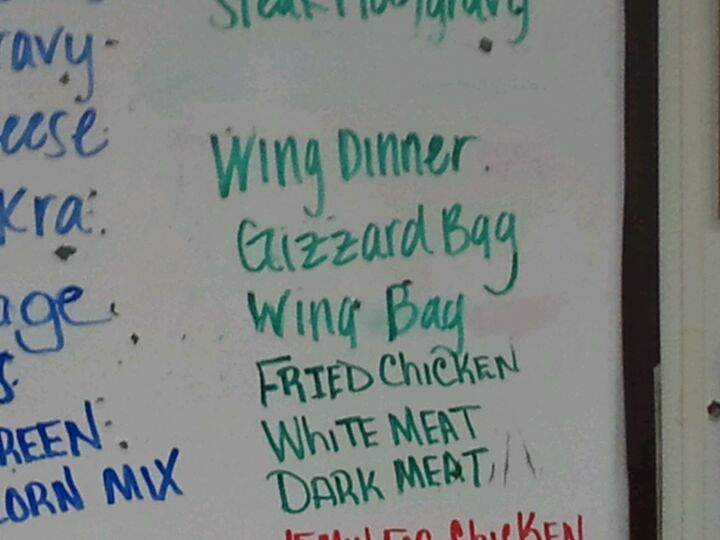 avy
eese
kra
age
REEN
CORN MIX
Wing Dinner
Gizzard Bag
Wing Bag
FRIED ChiCKEN
WhiTE MEAT
DARK MEAT
ChicKEN